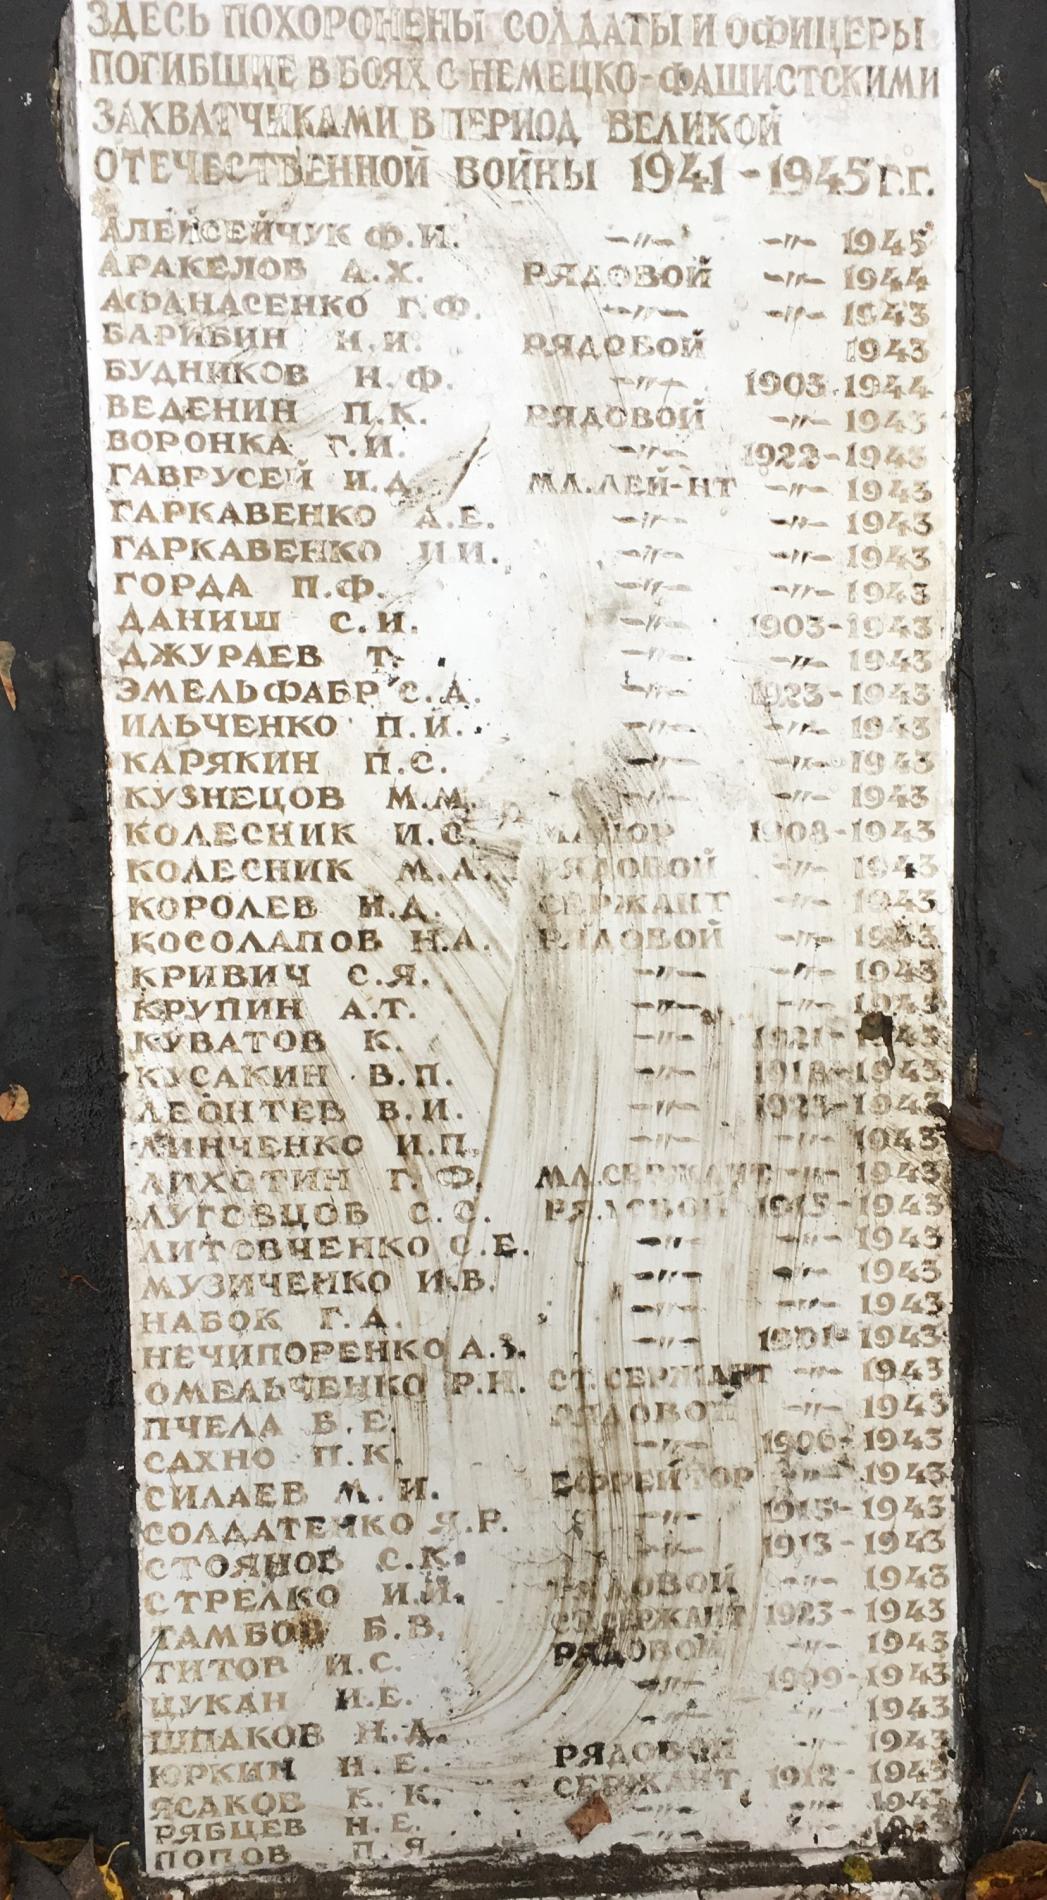 ЗДЕСЬ ПОХОРОНЕНЫ СОЛДАТЫ И ОФИЦЕРЫ
ПОГИБШИЕ В БОЯХ С НЕМЕЦКО-ФАШИСТСКИМИ
ЗАХВАТЧИКАМИ В ПЕРИОД ВЕЛИКОЙ
ОТЕЧЕСТВЕННОЙ ВОЙНЫ 1941-1945 Г.Г.
АЛЕКСЕЙЧУК Ф.И. -"- -"- 1945
АРАКЕЛОВ А.Х. РЯДОВОЙ -"- 1944
АФАНАСЕНКО Г.Ф. -"- -"- 1943
БАРИБИН Н.И. РЯДОВОЙ 1943
БУДНИКОВ Н.Ф. -"- 1903-1944
ВЕДЕНИН П.К. РЯДОВОЙ -"- 1943
ВОРОНКА Г.И. -"- 1922-1943
ГАВРУСЕЙ И.Д. МЛ.ЛЕЙ-НТ -"- 1943
ГАРКАВЕНКО А.Е. -"- -"- 1943
ГАРКАВЕНКО И.И. -"- -"- 1943
ГОРДА П.Ф. -"- -"- 1943
ДАНИШ С.И. -"- 1903-1943
ДЖУРАЕВ Т. -"- -"- 1943
ЭМЕЛЬФАБР С.А. -"- 1923-1943
ИЛЬЧЕНКО П.И. -"- -"- 1943
КАРЯКИН П.С. -"- -"- 1943
КУЗНЕЦОВ М.М. -"- -"- 1943
КОЛЕСНИК И.С. МАЙОР 1908-1943
КОЛЕСНИК М.А. РЯДОВОЙ -"- 1943
КОРОЛЕВ Н.Д. СЕРЖАНТ -"- 1943
КОСОЛАПОВ Н.А. РЯДОВОЙ -"- 1943
КРИВИЧ С.Я. -"- -"- 1943
КРУПИН А.Т. -"- -"- 1943
КУВАТОВ К. -"- 1921-1943
КУСАКИН В.П. -"- 1918-1943
ЛЕОНТЕВ В.И. -"- 1923-1943
ЛИНЧЕНКО И.П. -"- -"- 1943
ЛИХОТИН Г.Ф. МЛ.СЕРЖАНТ -"- 1943
ЛУГОВЦОВ С.С. РЯДОВОЙ 1915-1943
ЛИТОВЧЕНКО С.Е. -"- -"- 1943
МУЗИЧЕНКО И.В. -"- -"- 1943
НАБОК Г.А. -"- -"- 1943
НЕЧИПОРЕНКО А.З. -"- 1901-1943
ОМЕЛЬЧЕНКО Р.Н. СТ.СЕРЖАНТ -"- 1943
ПЧЕЛА В.Е. РЯДОВОЙ -"- 1943
САХНО П.К. -"- 1906-1943
СИЛАЕВ М.И. ЕФРЕЙТОР -"- 1943
СОЛДАТЕНКО Я.Р. -"- 1915-1943
СТОЯНОВ С.К. -"- 1913-1943
СТРЕЛКО И.И. РЯДОВОЙ -"- 1943
ТАМБОВ Б.В. СТ.СЕРЖАНТ 1923-1943
ТИТОВ И.С. РЯДОВОЙ -"- 1943
ЦУКАН И.Е. -"- 1909-1943
ШПАКОВ Н.Д. -"- -"- 1943
ЮРКИН Н.Е. РЯДОВОЙ -"- 1943
ЯСАКОВ К.К. СЕРЖАНТ 1912-1943
РЯБЦЕВ Н.Е. -"- -"- 1943
ПОПОВ П.Я -"- -"- 1943